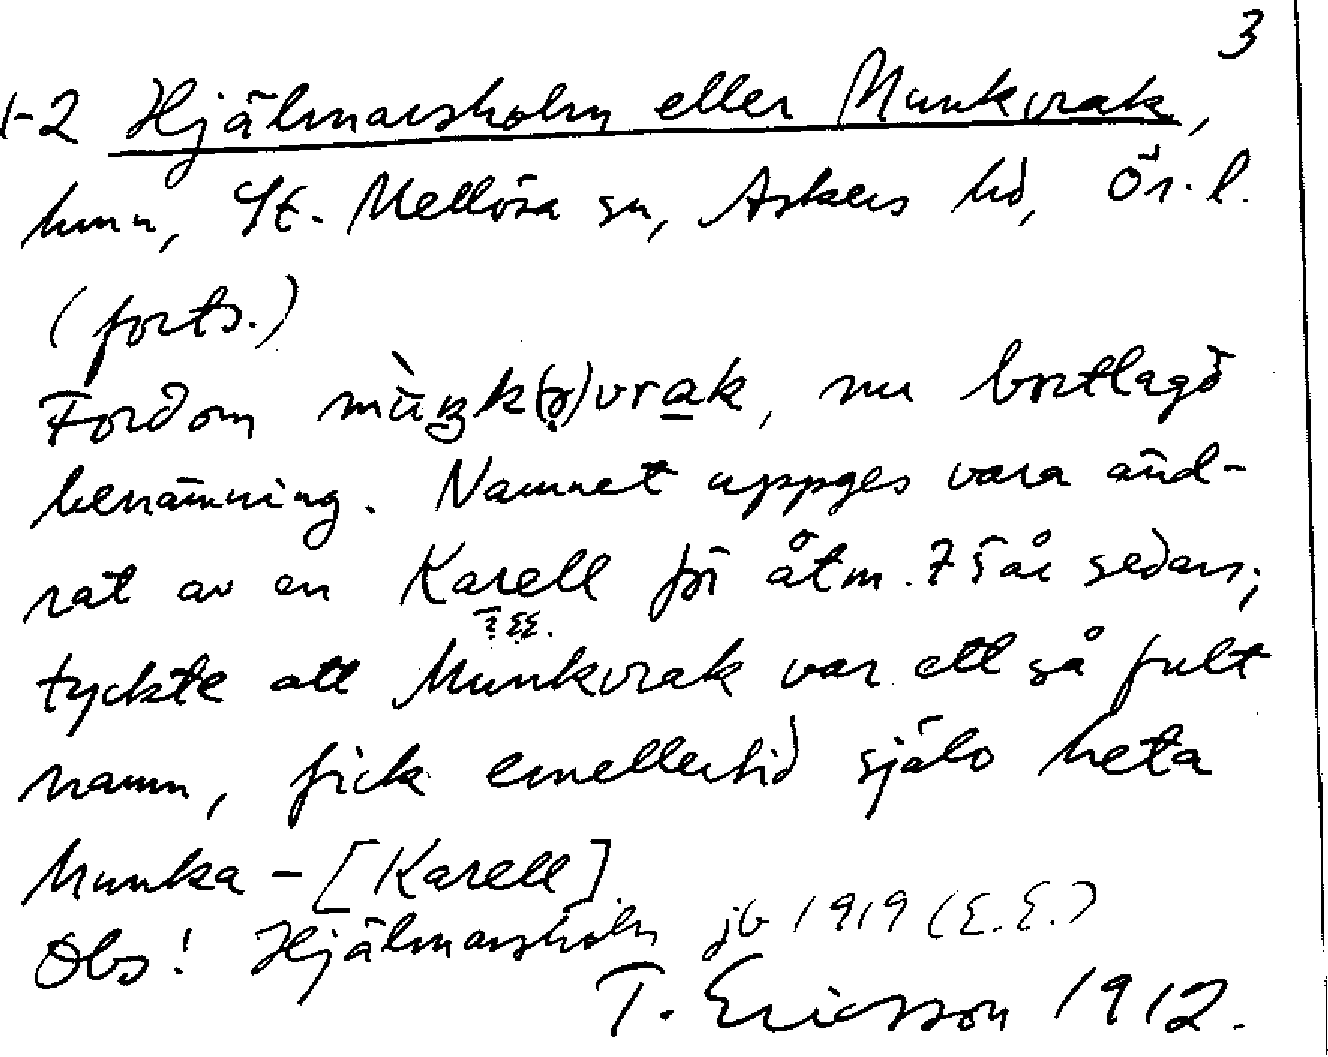 3
1-2 Hjälmarsholm eller Munkvrak,
hmn, St. Mellösa sn, Askers hd, Ör. l.
(forts.)
Fordom mùŋk(ə)vrak, nu bortlagd
benämning. Namnet uppges vara änd-
rat av en Karell för åtm. 75 år sedan;
? EE.
tyckte att Munkvrak var ett så fult
namn, fick emellertid själv heta
Munka-[Karell]
Obs! Hjälmarsholm jb 1919 (E.E.)
T. Ericsson 1912.